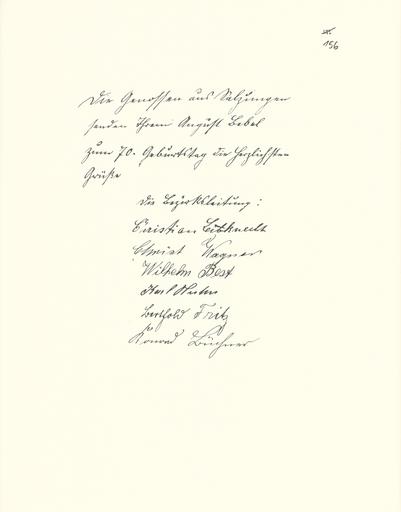 156
Die Genossen aus Salzungen
senden Ihrem August Bebel
zum 70. Geburtstag die herzlichsten
Grüße
Die Bezirksleitung:
Christian Liebknecht
Christ Wagner
Wilhelm Best
Karl
Berthold Fritz
Konrad Büchner